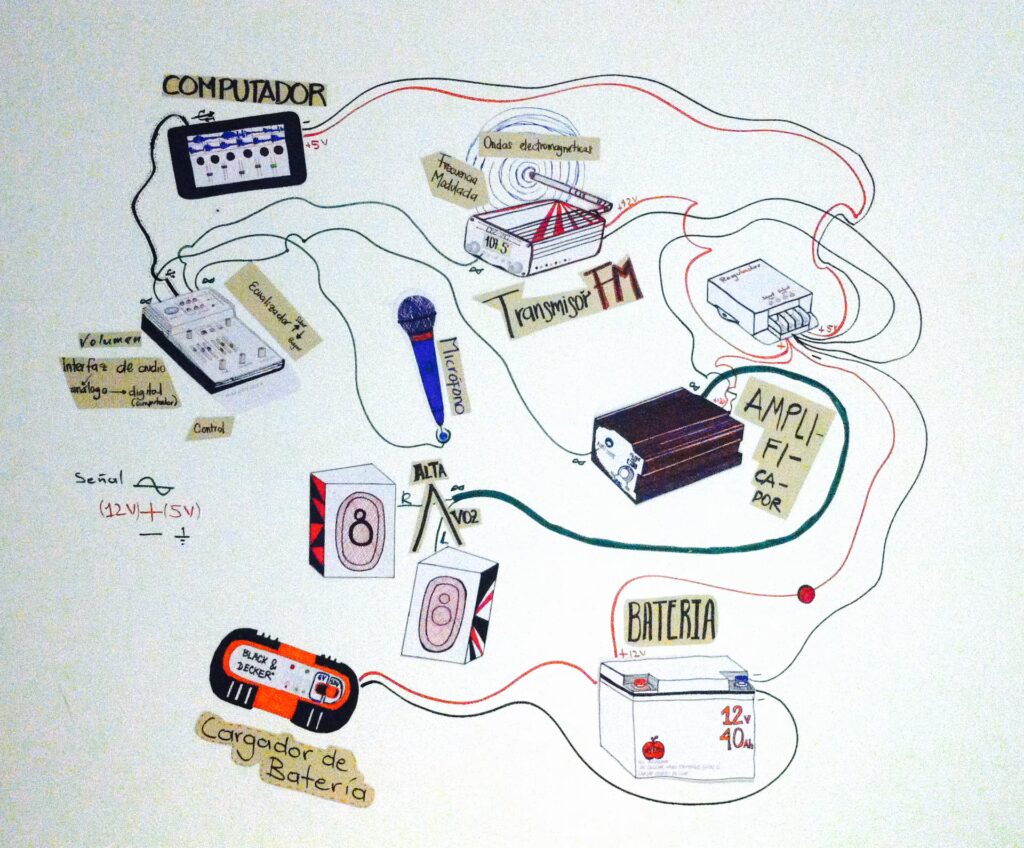 COMPUTADOR
+5V
Ondas electromagnéticas
Frecuencia
Modulada
+12V
101.5
Transmisor FM
Regulador
+5V
Ecualizador
Volumen
Interfaz de audio
análogo → digital
(computador)
Control
Micrófono
AMPLI-
FI-
CA-
DOR
Señal
(12V)+(5V)
ALTA
VOZ
R
L
8
8
BATERIA
+12V
12V
40Ah
BLACK &
DECKER
Cargador de
Batería